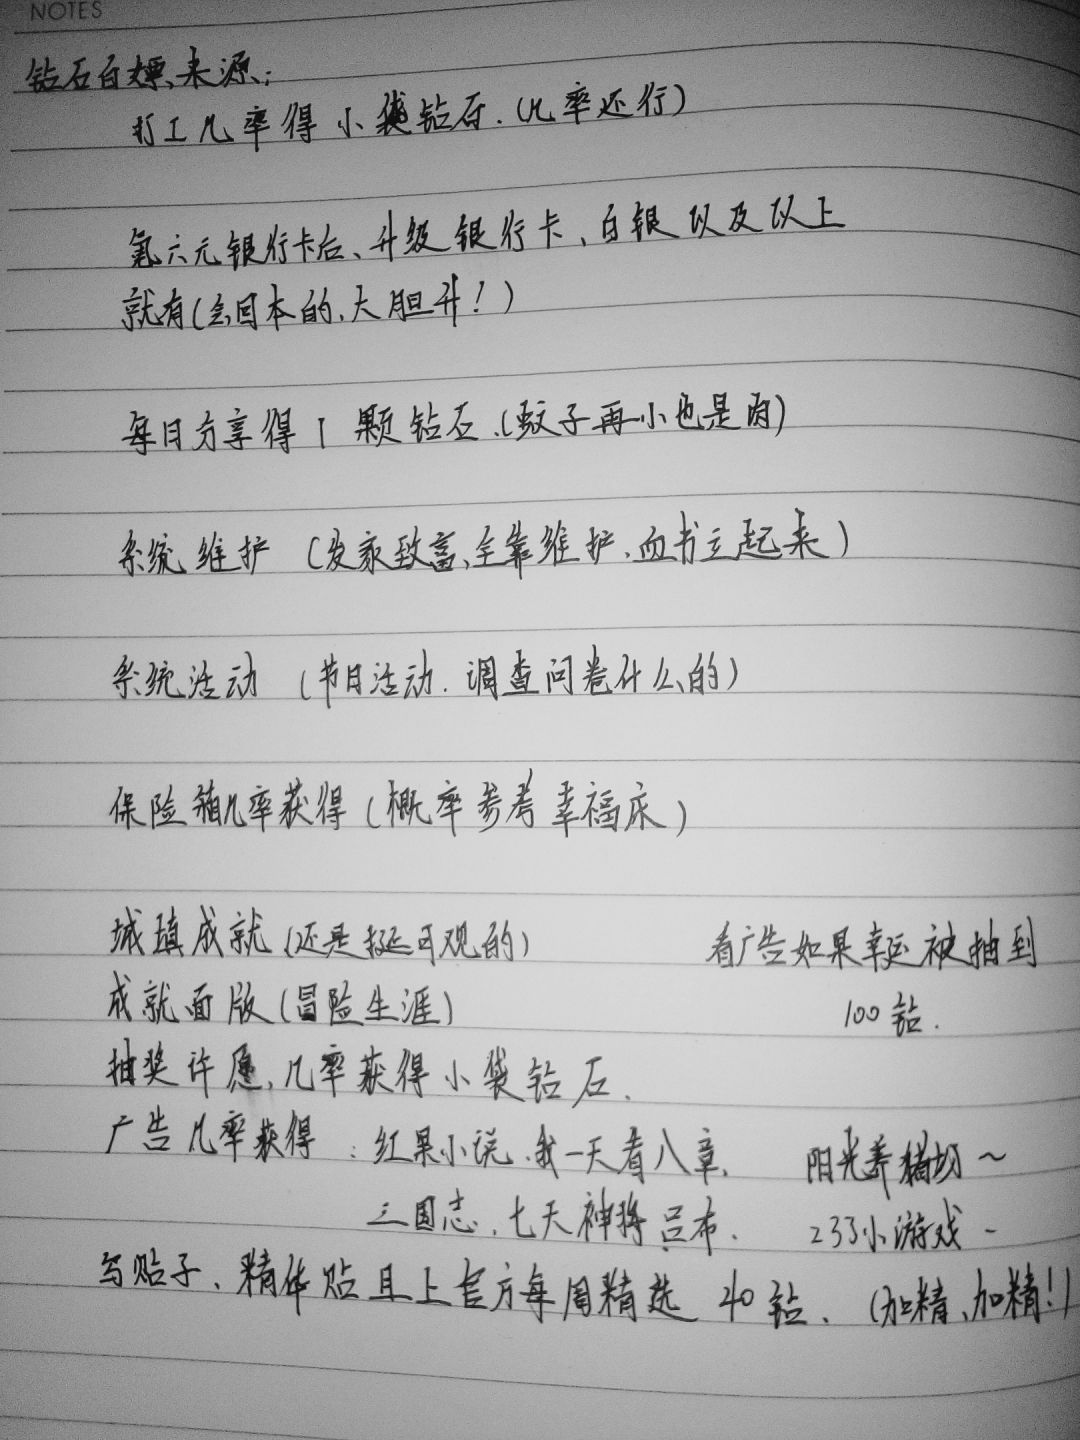 NOTES
钻石白嫖来源：
打工几率得小袋钻石.(几率还行)
氪六元银行卡后、升级银行卡、白银以及以上
就有(会回本的、大胆升！)
每日分享得1颗钻石.(蚊子再小也是肉)
系统维护（发家致富、全靠维护.血书立起来）
系统活动（节日活动.调查问卷什么的）
保险箱几率获得(概率参考幸福床)
城镇成就(还是挺可观的)
看广告如果幸运被抽到
100钻.
成就面版(冒险生涯)
抽奖许愿、几率获得小袋钻石.
广告几率获得：红果小说.我一天看八章.
阳光养猪场～
三国志.七天神将吕布.
233小游戏～
写贴子、精体贴且上官方每周精选40钻、(加精、加精!)